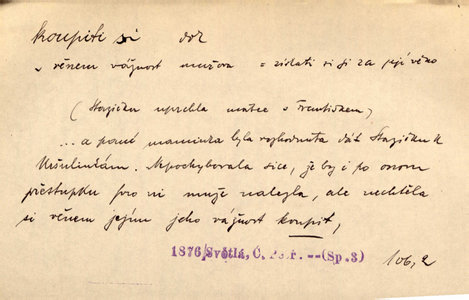 koupiti si dok
s věnem vážnost mužova = získati si ji za její věno
(Stazičku uprchla matce s Františkem,
... a paní maminka byla rozhodnuta dát Stazičku k
Uršulinkám. Nepochybovala sice, že by i po onom
přestupku pro ni muže nalezla, ale nechtěla
si věnem jejím jeho vážnost koupit,
1876/Světlá, Č. --(Sp.3) 106,2